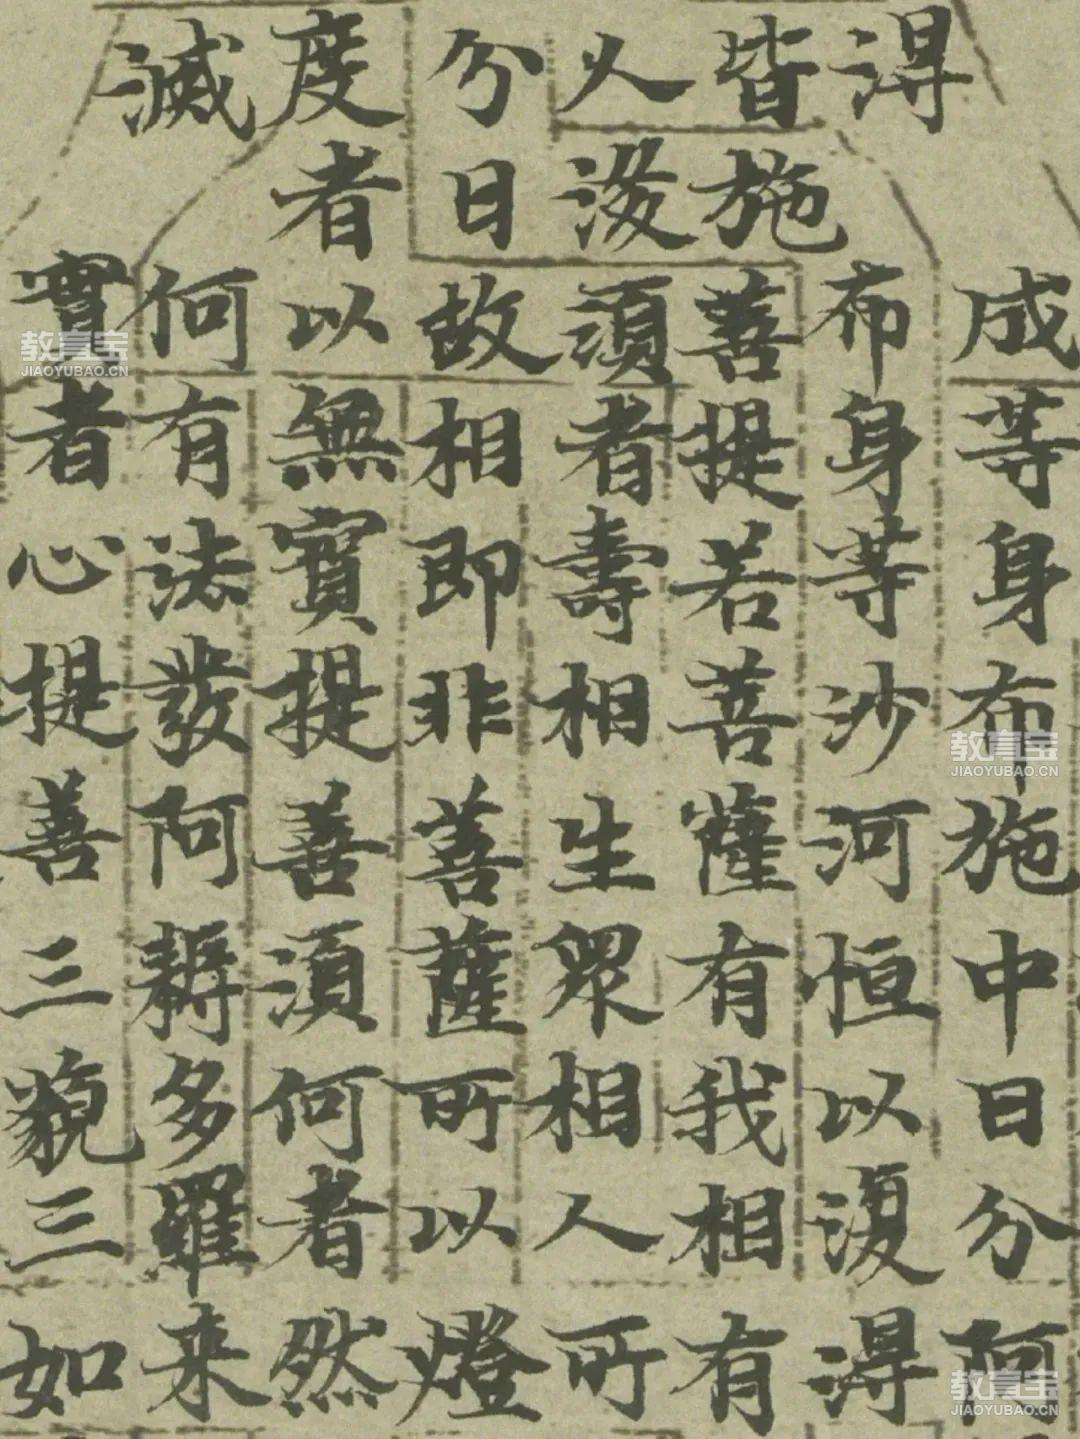 成等身布施中日分阿
淂布身等沙河恒以復淂
皆施菩提若菩薩有我相有
人後須者壽相生眾相人所
分日故相即非菩薩所以燈
度者以無實提菩須何者然
滅何有法發阿耨多羅来
實者心提菩三藐三如
教育宝
JIAOYUBAO.CN
教育宝
JIAOYUBAO.CN
教育宝
JIAOYUBAO.CN